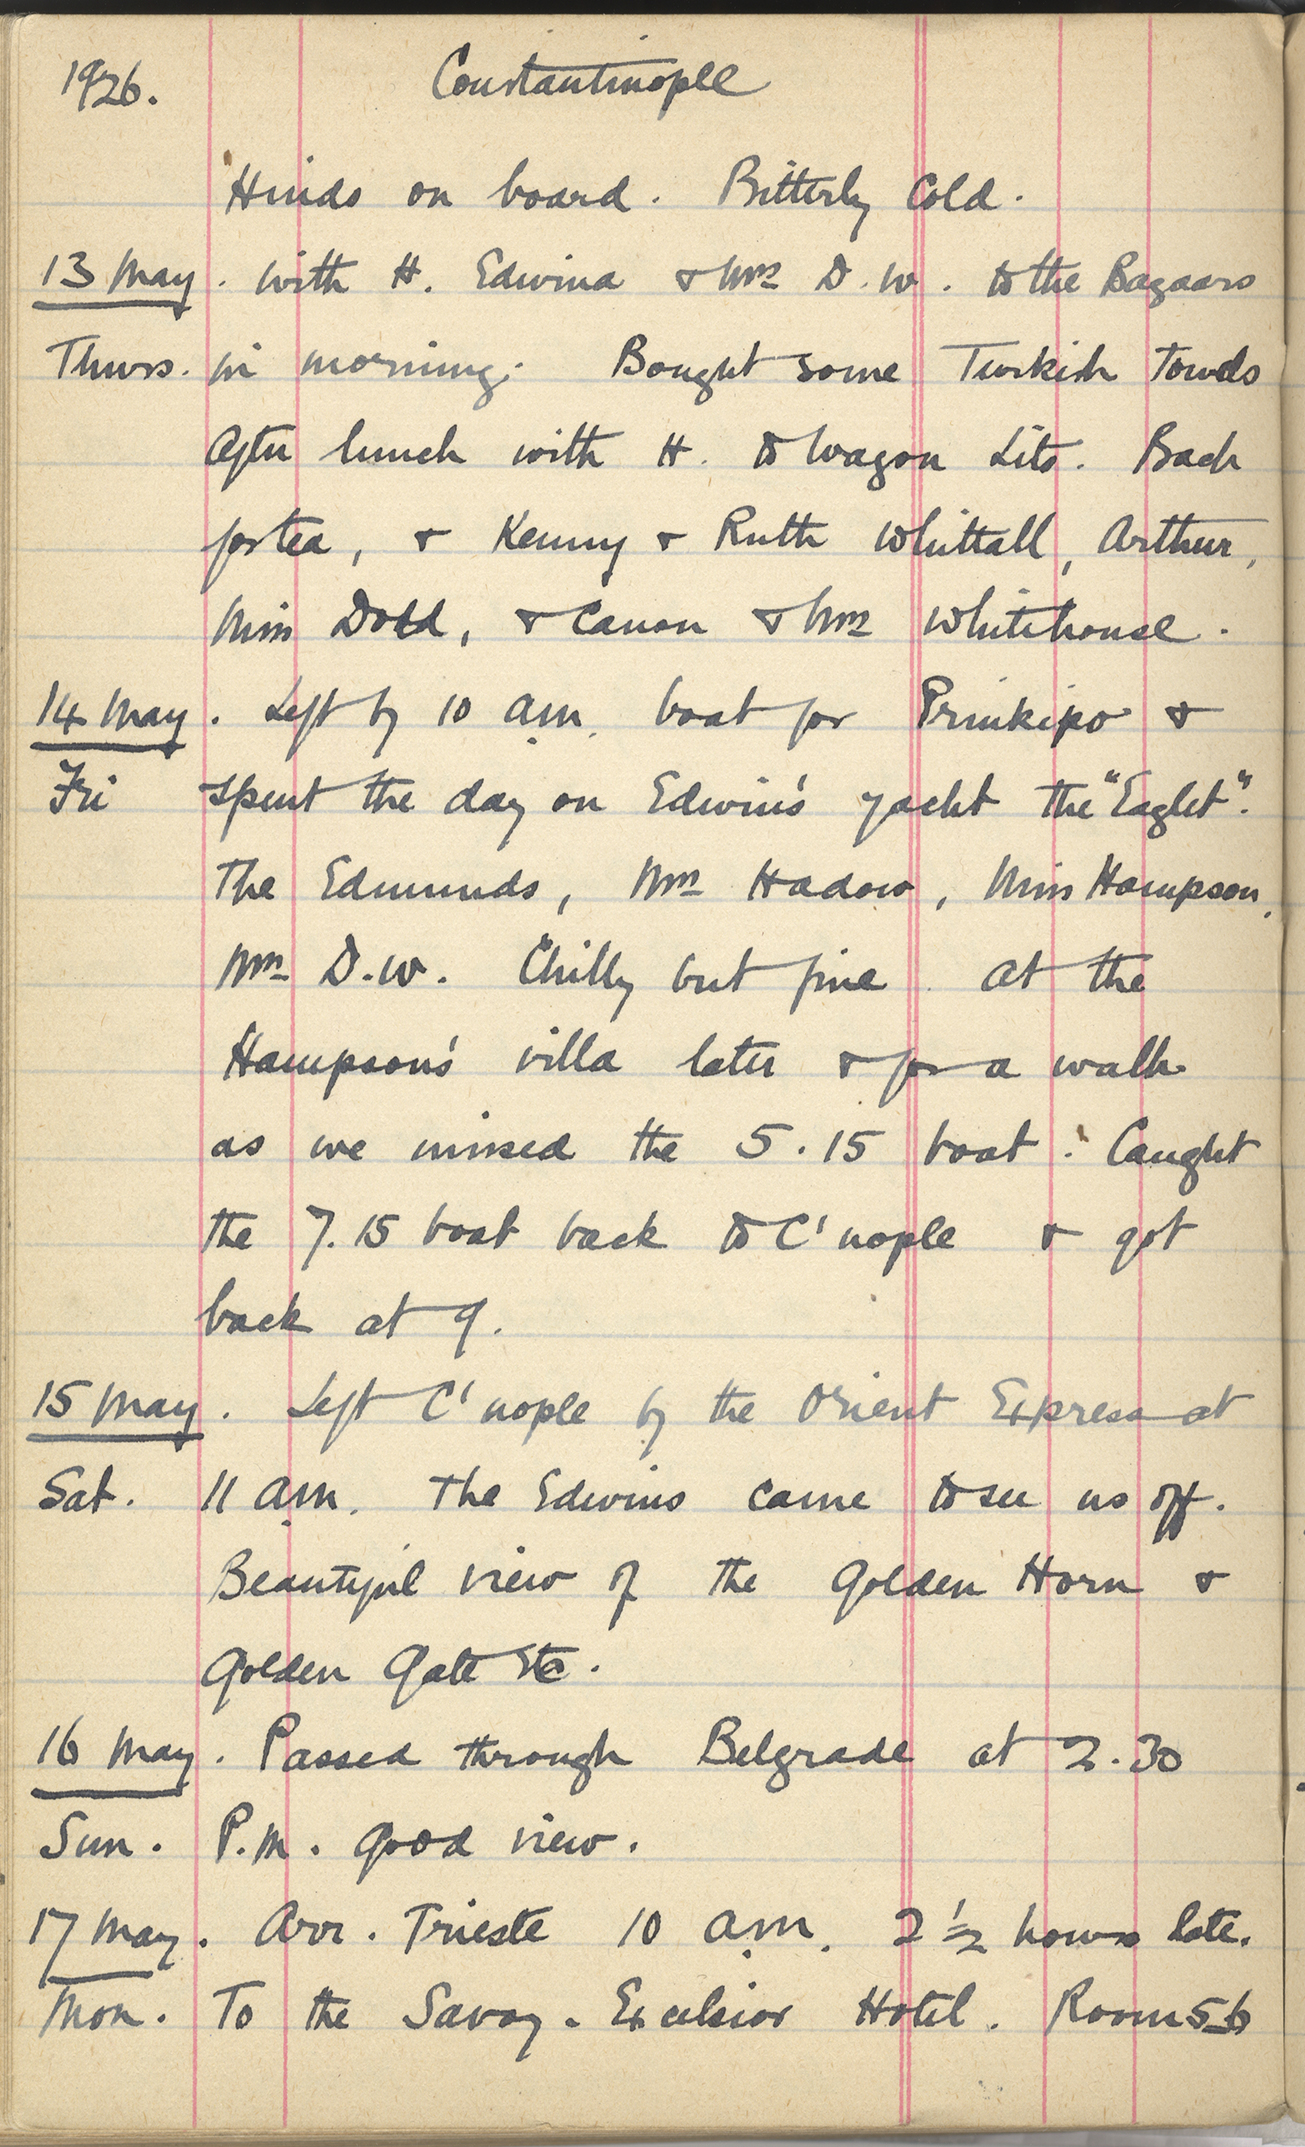 1926. Constantinople
Hinds on board. Bitterly Cold.
13 May. With H. Edwina & Mrs D.W. to the Bazaars
Thurs. in morning. Bought some Turkish Towels
After lunch with H. to Wagon Lits. Back
for tea, & Kenny & Ruth Whittall, Arthur,
Miss Dodd, & Canon & Mrs Whitehouse.
14 May. Left by 10 am. boat for Prinkipo &
Fri spent the day on Edwin's yacht the "Eaglet".
The Edmunds, Mrs Hadow, Miss Hampson,
Mrs D.W. Chilly but fine. At the
Hampson's villa later & for a walk
as we missed the 5.15 boat. Caught
the 7.15 boat back to C'nople & got
back at 9.
15 May. Left C'nople by the Orient Express at
Sat. 11 am. The Edwins came to see us off.
Beautiful view of the Golden Horn &
Golden Gate etc.
16 May. Passed through Belgrade at 2.30
Sun. P.M. Good view.
17 May. Arr. Trieste 10 am. 2½ hours late.
Mon. To the Savoy-Excelsior Hotel. Room 56